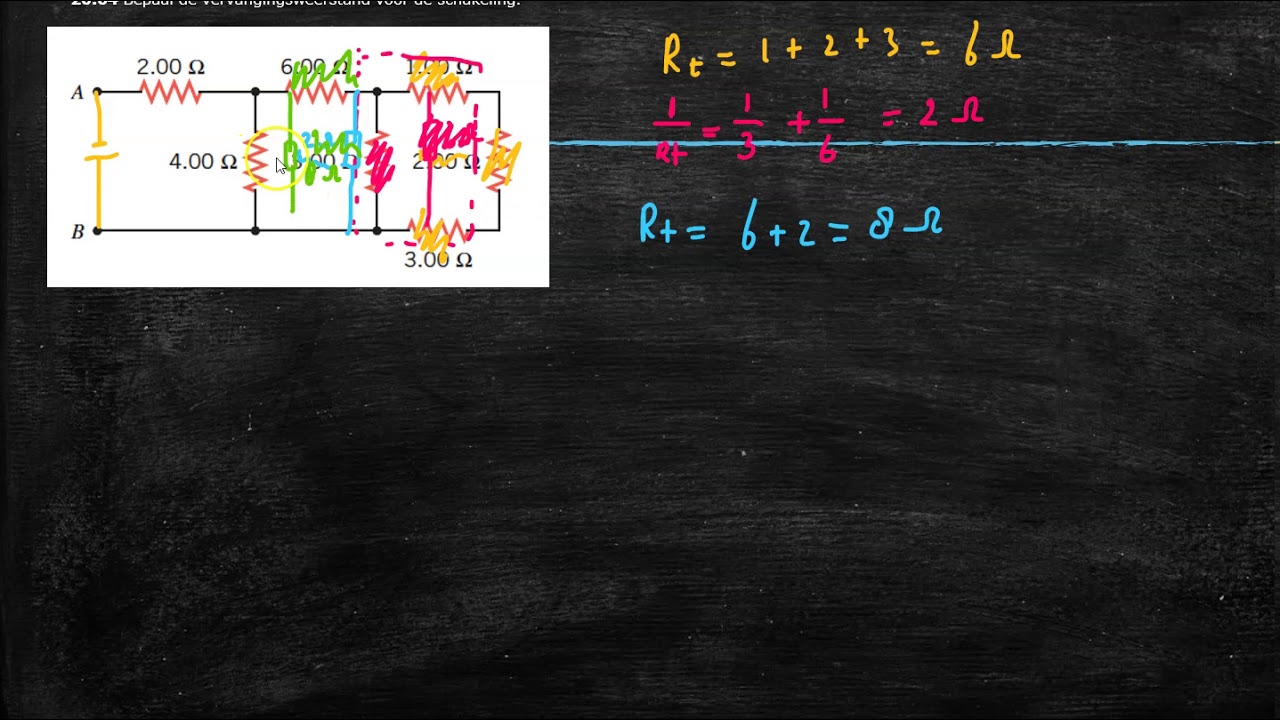 20.04 Bepaal de vervangingsweerstand voor de schakeling.
2.00 Ω 6.00 Ω 1.00 Ω
A
4.00 Ω 3.00 Ω 2.00 Ω
B
3.00 Ω
Rt = 1 + 2 + 3 = 6 Ω
1/Rt = 1/3 + 1/6 = 2 Ω
Rt = 6 + 2 = 8 Ω